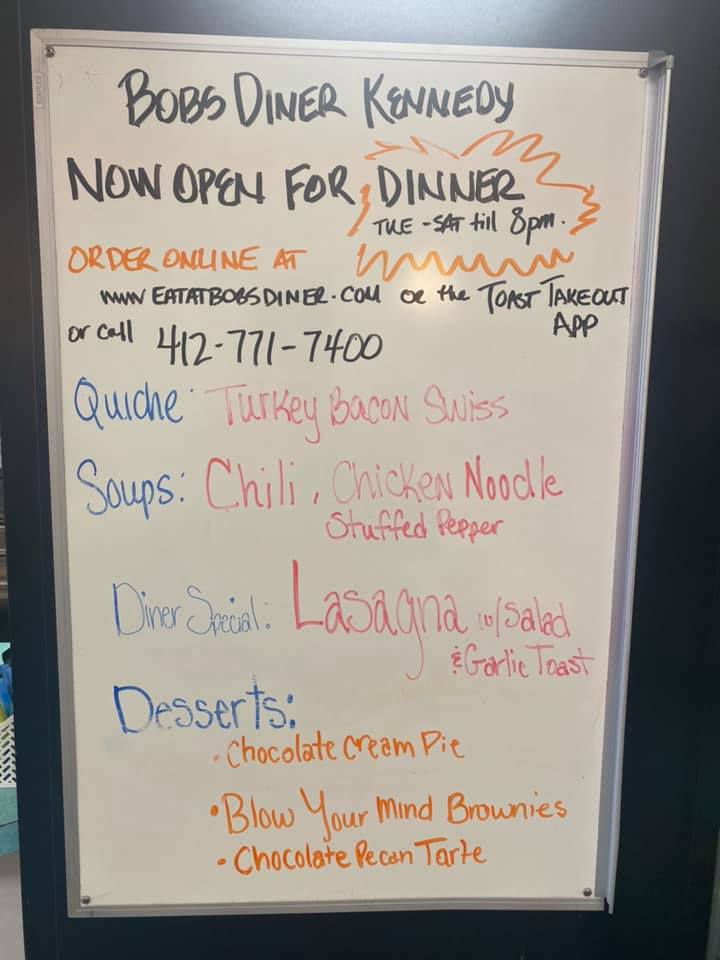 BOBS DINER KENNEDY
NOW OPEN FOR DINNER
TUE - SAT till 8pm.
ORDER ONLINE AT
www EATATBOBSDINER.COM or the TOAST TAKEOUT
APP
or call 412-771-7400
Quiche: Turkey Bacon Swiss
Soups: Chili, Chicken Noodle
Stuffed Pepper
Diner Special: Lasagna w/Salad
& Garlic Toast
Desserts:
• Chocolate Cream Pie
• Blow Your Mind Brownies
• Chocolate Pecan Tarte